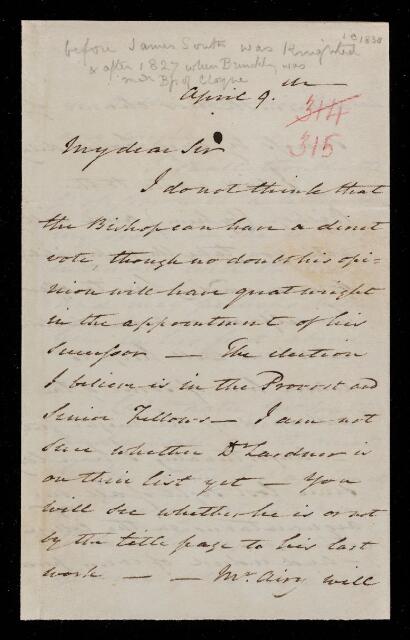 ie 1830
before James South was Knighted
& after 1827 when Brinkley was
made Bp. of Cloyne
April 9.th
314
315
My dear Sir
I do not think that
the Bishop can have a direct
vote, though no doubt his opi-
nion will have great weight
in the appointment of his
successor — The election
I believe is in the Provost and
Senior Fellows — I am not
sure whether Dr. Lardner is
on their list yet — You
will see whether he is or not
by the title page to his last
work — — Mr. Airy will